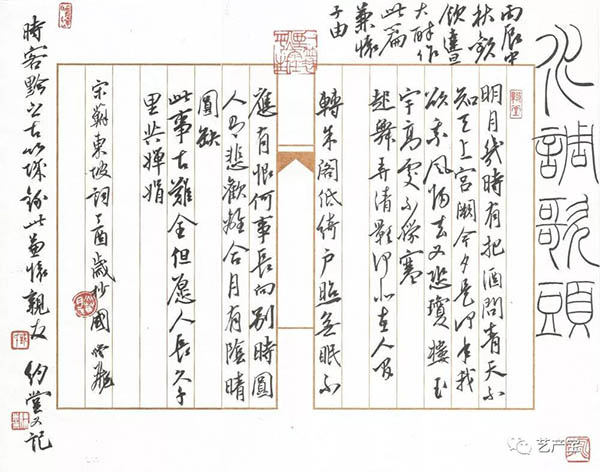 水調歌頭
丙辰中
秋歡
飲達旦
大醉作
此篇
兼懷
子由
明月幾時有把酒問青天不
知天上宮闕今夕是何年我
欲乘風歸去又恐瓊樓玉
宇高處不勝寒
起舞弄清影何似在人間
轉朱閣低綺戶照無眠不
應有恨何事長向別時圓
人有悲歡離合月有陰晴
圓缺
此事古難全但愿人長久千
里共嬋娟
宋蘇東坡詞 丁酉歲抄 國
時客黔之古筑城錄此兼懷親友 約堂又記
艺产